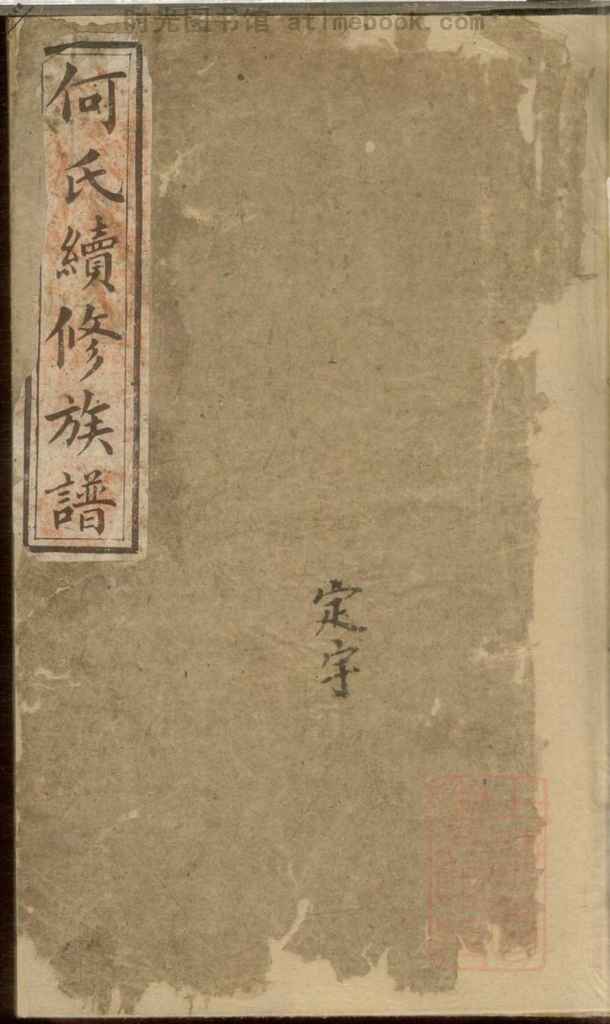 时光图书馆 atimebook.com
何氏續修族譜
定字